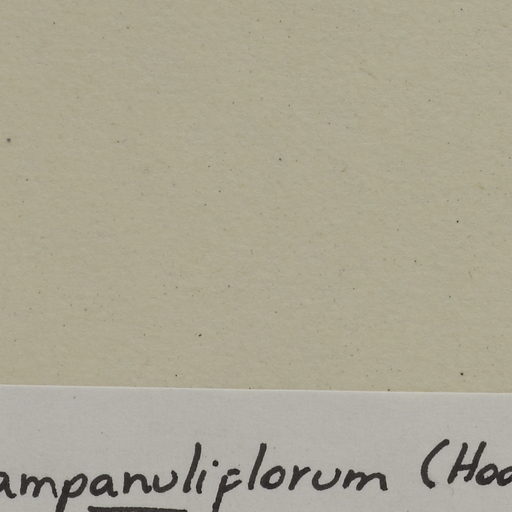 ampanuliflorum (Hoo